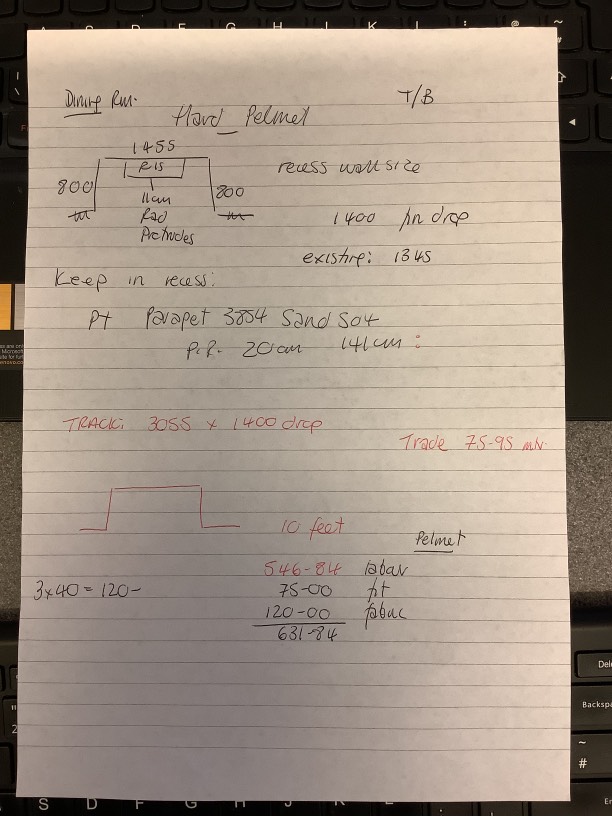 Dining Rm.
T/B
Hard Pelmet
1455
recess wall size
800
800
11cm
Rad
Protrudes
1400 fin drop
existing: 1345
Keep in recess:
Pt Parapet 3854 Sand 504
P.R. 20cm 141cm :
TRACK: 3055 x 1400 drop
Trade 75-95 mtr
10 feet
Pelmet
546-84 labour
3x40 = 120-
75-00 fit
120-00 fabric
631-84